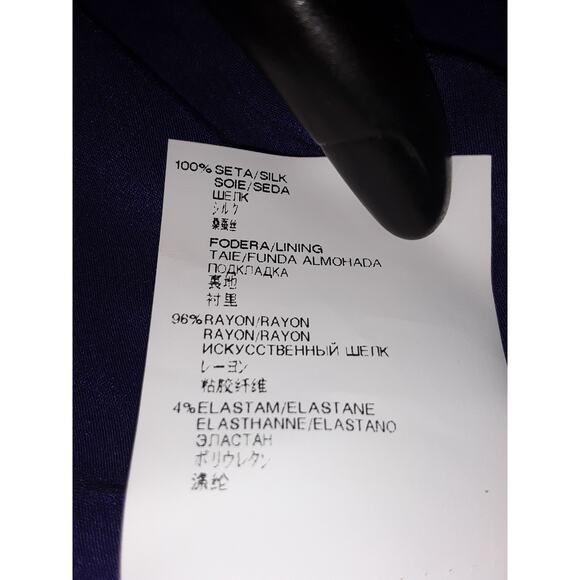 100% SETA/SILK
SOIE/SEDA
ШЕЛК
シルク
桑蚕丝
FODERA/LINING
TAIE/FUNDA ALMOHADA
ПОДКЛАДКА
裏地
衬里
96% RAYON/RAYON
RAYON/RAYON
ИСКУССТВЕННЫЙ ШЕЛК
レーヨン
粘胶纤维
4% ELASTAM/ELASTANE
ELASTHANNE/ELASTANO
ЭЛАСТАН
ポリウレタン
涤纶